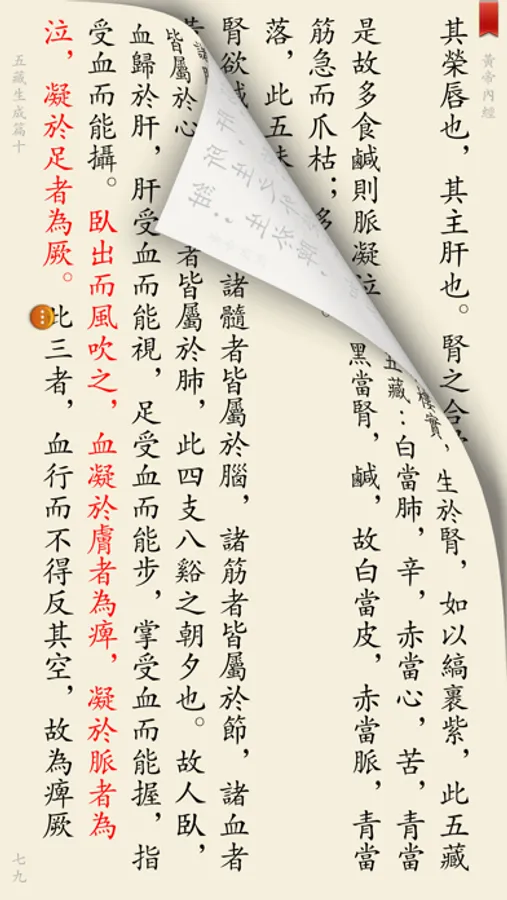 黃帝內經
其榮唇也，其主肝也。腎之合
樓實，生於腎，如以縞裏紫，此五藏
五藏：白當肺，辛，赤當心，苦，青當
是故多食鹹則脈凝泣
黑當腎，鹹，故白當皮，赤當脈，青當
筋急而爪枯；多
落，此五味
腎欲鹹
諸髓者皆屬於腦，諸筋者皆屬於節，諸血者
皆屬於心
者皆屬於肺，此四支八谿之朝夕也。故人臥，
血歸於肝，肝受血而能視，足受血而能步，掌受血而能握，指
受血而能攝。臥出而風吹之，血凝於膚者為痺，凝於脈者為
泣，凝於足者為厥。此三者，血行而不得反其空，故為痺厥
五藏生成篇十
七九